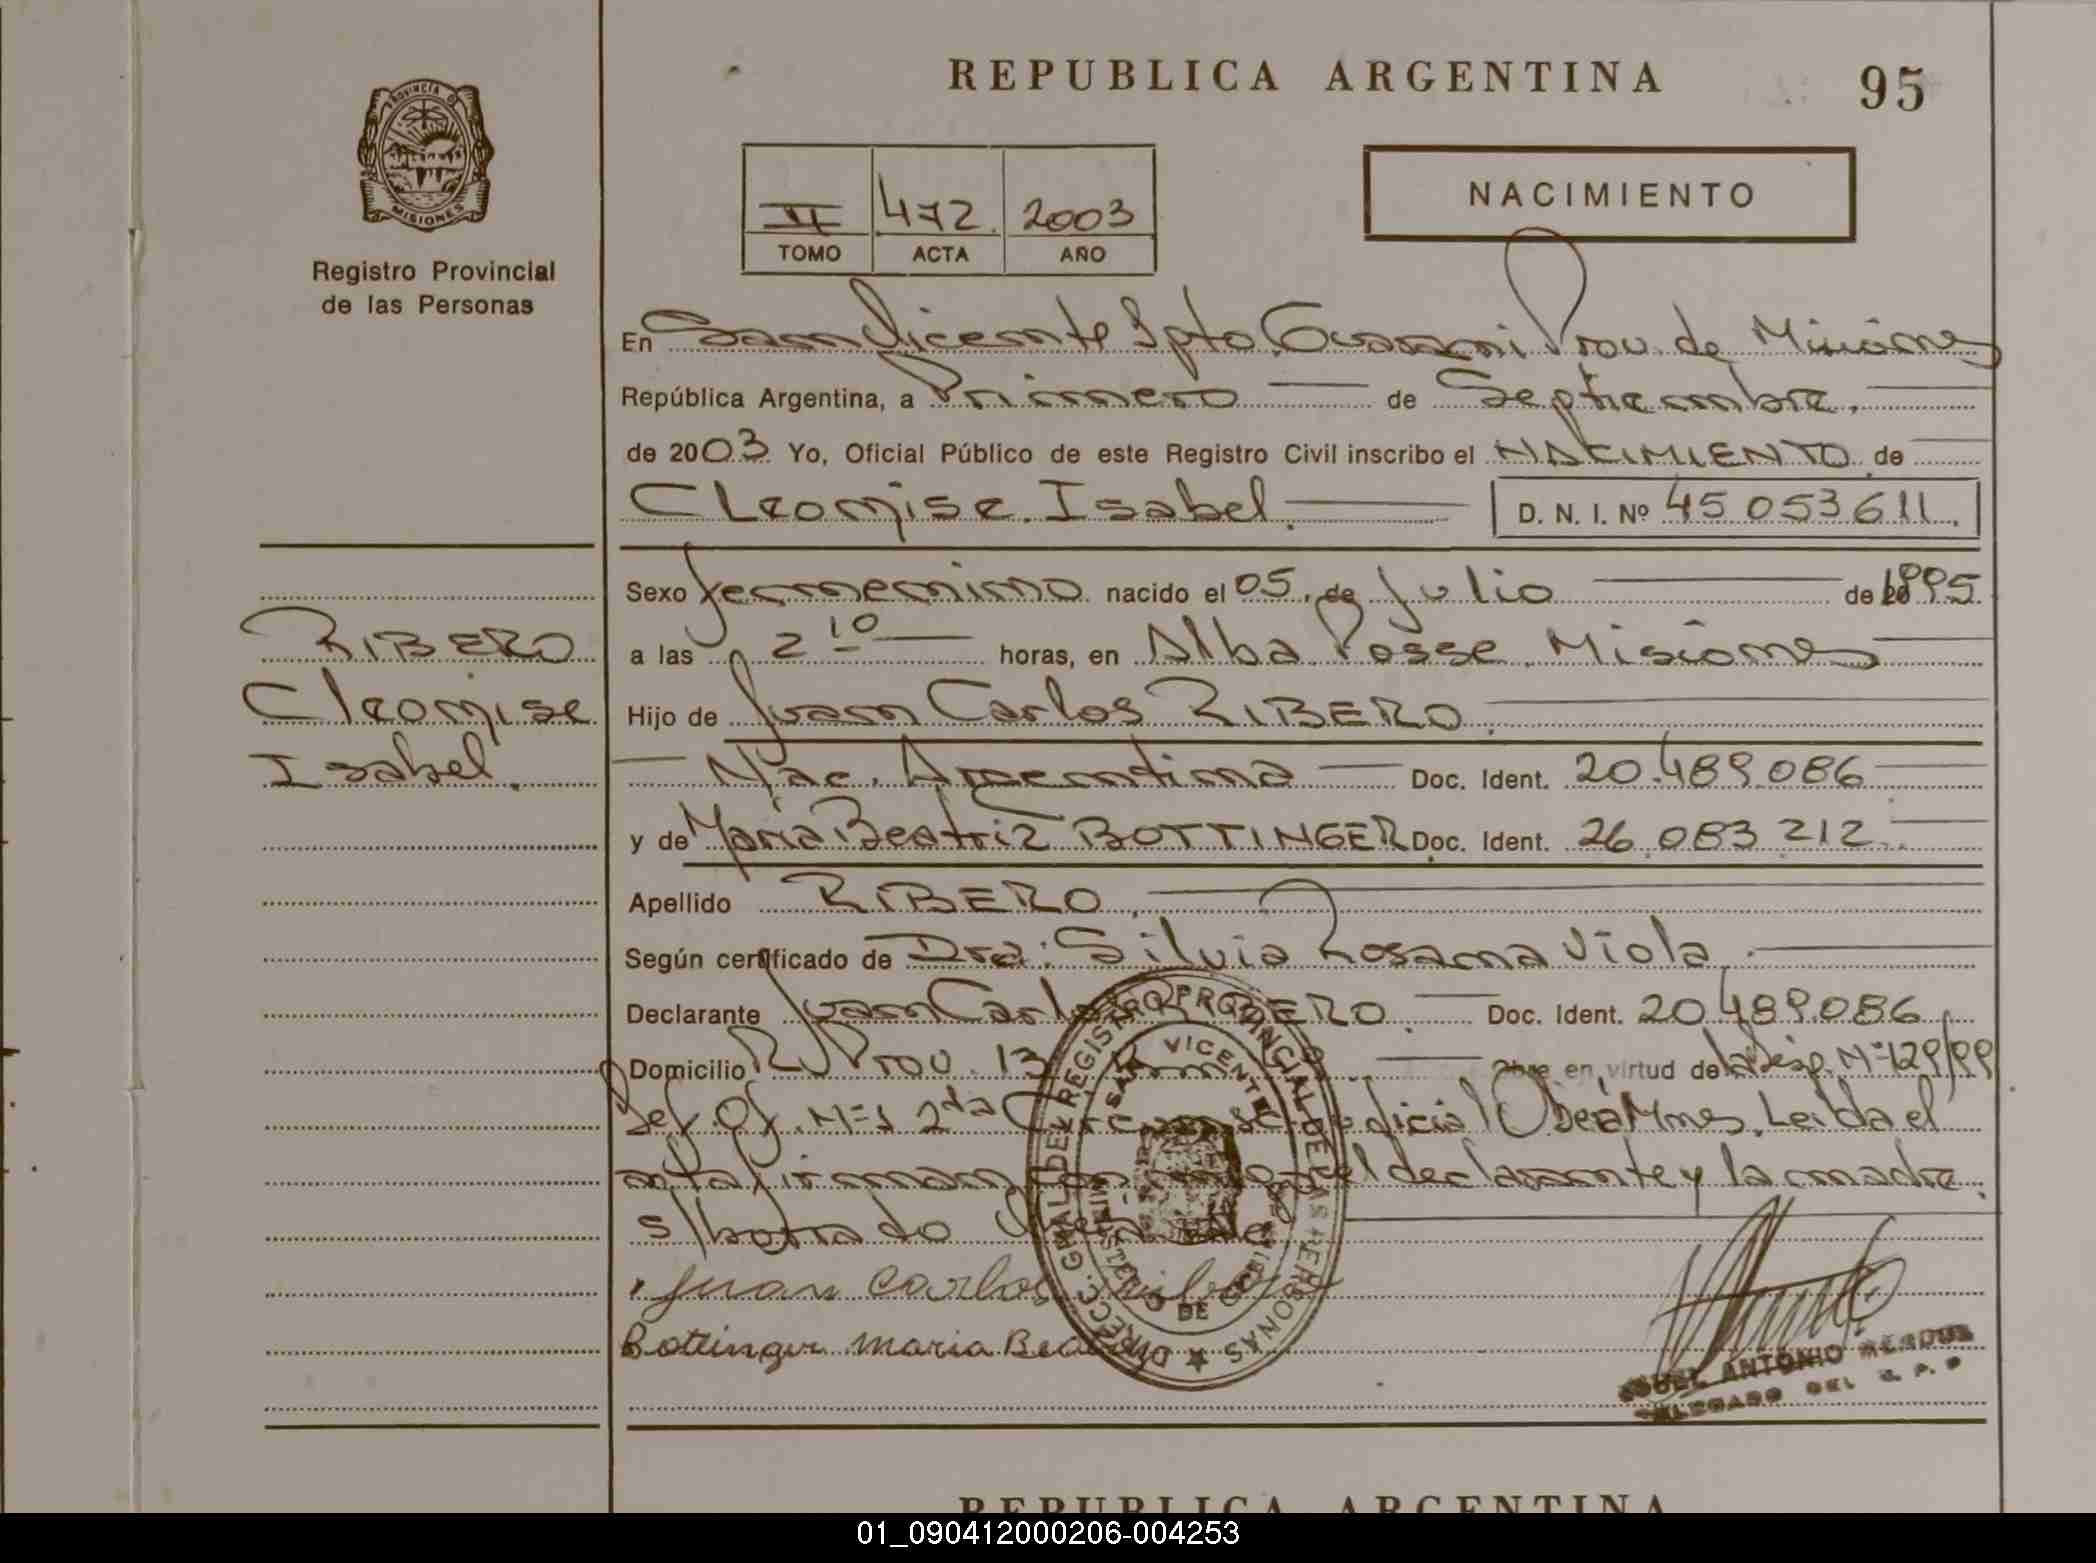 REPUBLICA ARGENTINA
95
PROVINCIA D
MISIONES
Registro Provincial
de las Personas
II 472. 2003
TOMO ACTA AÑO
NACIMIENTO
En San Vicente Dpto. Guarani Prov. de Misiones
República Argentina, a Primero de Septiembre.
de 2003 Yo, Oficial Público de este Registro Civil inscribo el NACIMIENTO de
Cleonise Isabel. D. N. I. Nº 45 053 611.
Sexo femenino nacido el 05. de Julio de 1995
a las 2 10 horas, en Alba Posse Misiones
RIBERO
Cleonise
Isabel.
Hijo de Juan Carlos RIBERO.
Nac. Argentina Doc. Ident. 20.489.086
y de Maria Beatriz BOTTINGER Doc. Ident. 26.083.212
Apellido RIBERO.
Según certificado de Dra: Silvia Rosana Viola
Declarante Juan Carlos RIBERO. Doc. Ident. 20.489.086
Domicilio R. Prov. 13 Obre en virtud de Nº 129/99
Def. Of. Nº 1 2da Judicial Oberá Mnes. Leida el
acta firman el declarante y la madre.
S/borrado
Juan Carlos
Bottinger Maria
DIRECC. GRAL DEL REGISTRO PROVINCIAL DE LAS PERSONAS
SAN VICENTE
MINISTERIO DE GOBIERNO
ANTONIO
DELEGADO DEL R. P. P
REPUBLICA ARGENTINA
01_090412000206-004253